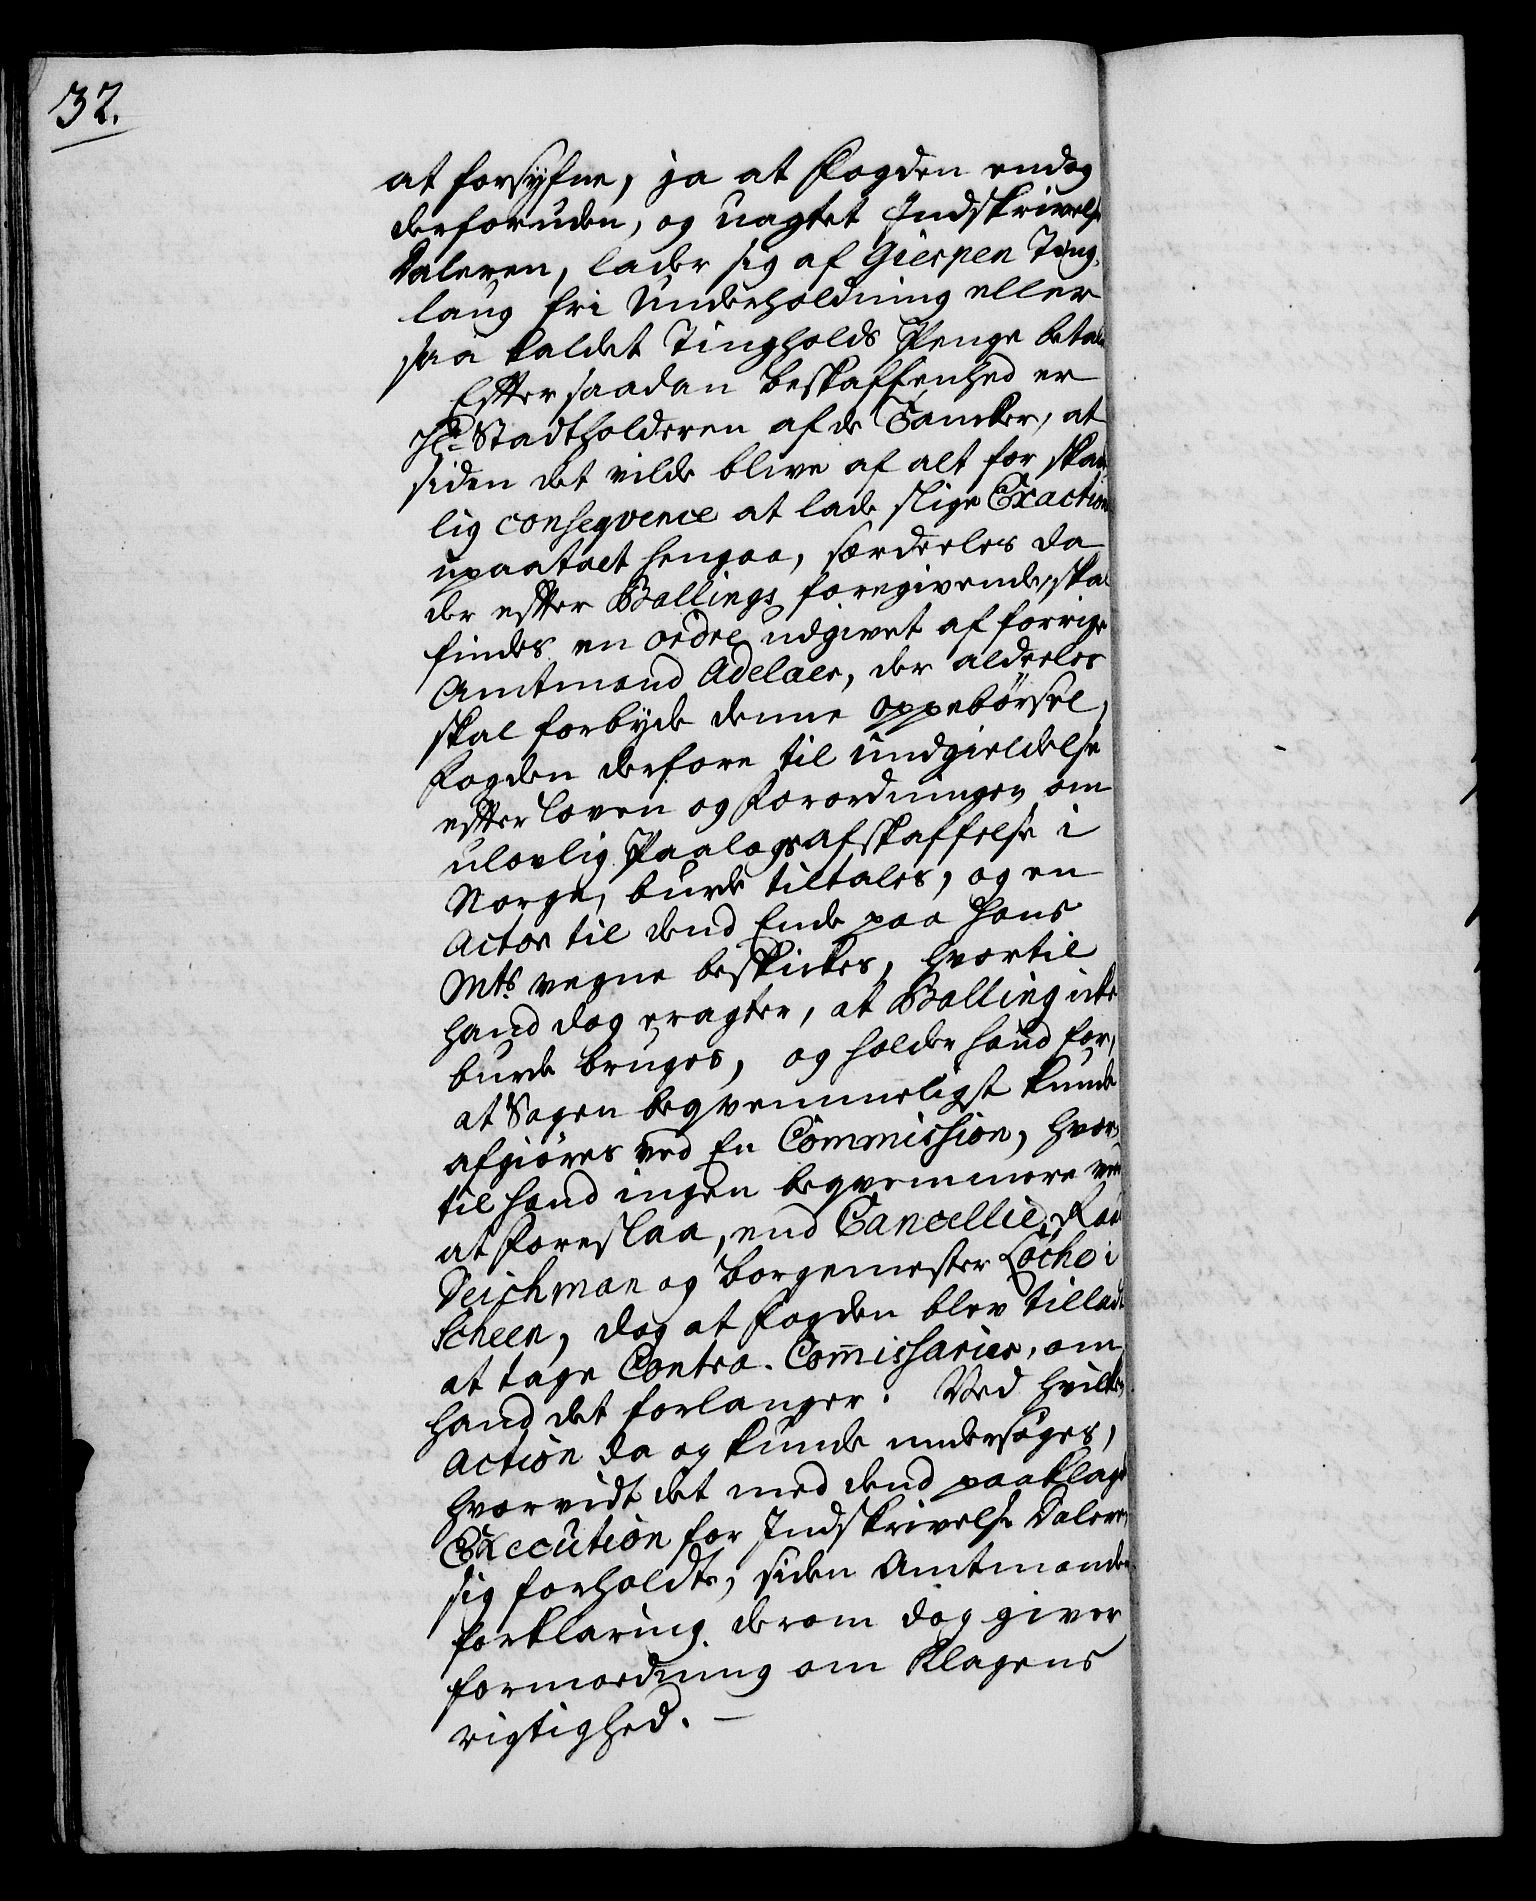 32.
at forsyfne, ja at Fogden endog
derforuden, og uagtet Indskrivelse
Daleren, lader sig af Gierpen Ting-
laug fri Underholdning eller
saa kaldet Tingholds Penge betale
Effter saadan beskaffenhed er
Hr. Stadtholderen af de Tancker, at
siden det vilde blive af alt for skad-
lig conseqvence at lade slige Exaction
upaatalt hengaa, særdeeles da
der effter Ballings foregivende, skal
findes en ordre udgivet af forrige
Amtmand Adelaer, der aldeeles
skal forbyde denne oppebørsel,
Fogden derfore til undgieldelse
effter Loven og Forordningen om
ulovlig Paalags afskaffelse i
Norge, burde tiltales, og en
Actor til dend Ende paa Hans
Mts. vegne beskickes, hvortil
hand dog eragter, at Balling icke
burde bruges, og holder hand for,
at Sagen beqvemmeligst kunde
afgiøres ved En Commission, hvor-
til hand ingen beqvemmere veed
at foreslaa, end Cancellie Raad
Deichman og Borgemester Coch i
Scheen, dog at Fogden blev tilladt
at tage Contra-Comissarier, om
hand det forlanger: Ved hvilken
Action da og kunde undersøges,
hvorvidt det med dend paaklagede
Execution for Indskrivelse Daleren
sig forholdt, siden Amtmandens
forklaring derom dog giver
formodning om Klagens
rigtighed. –